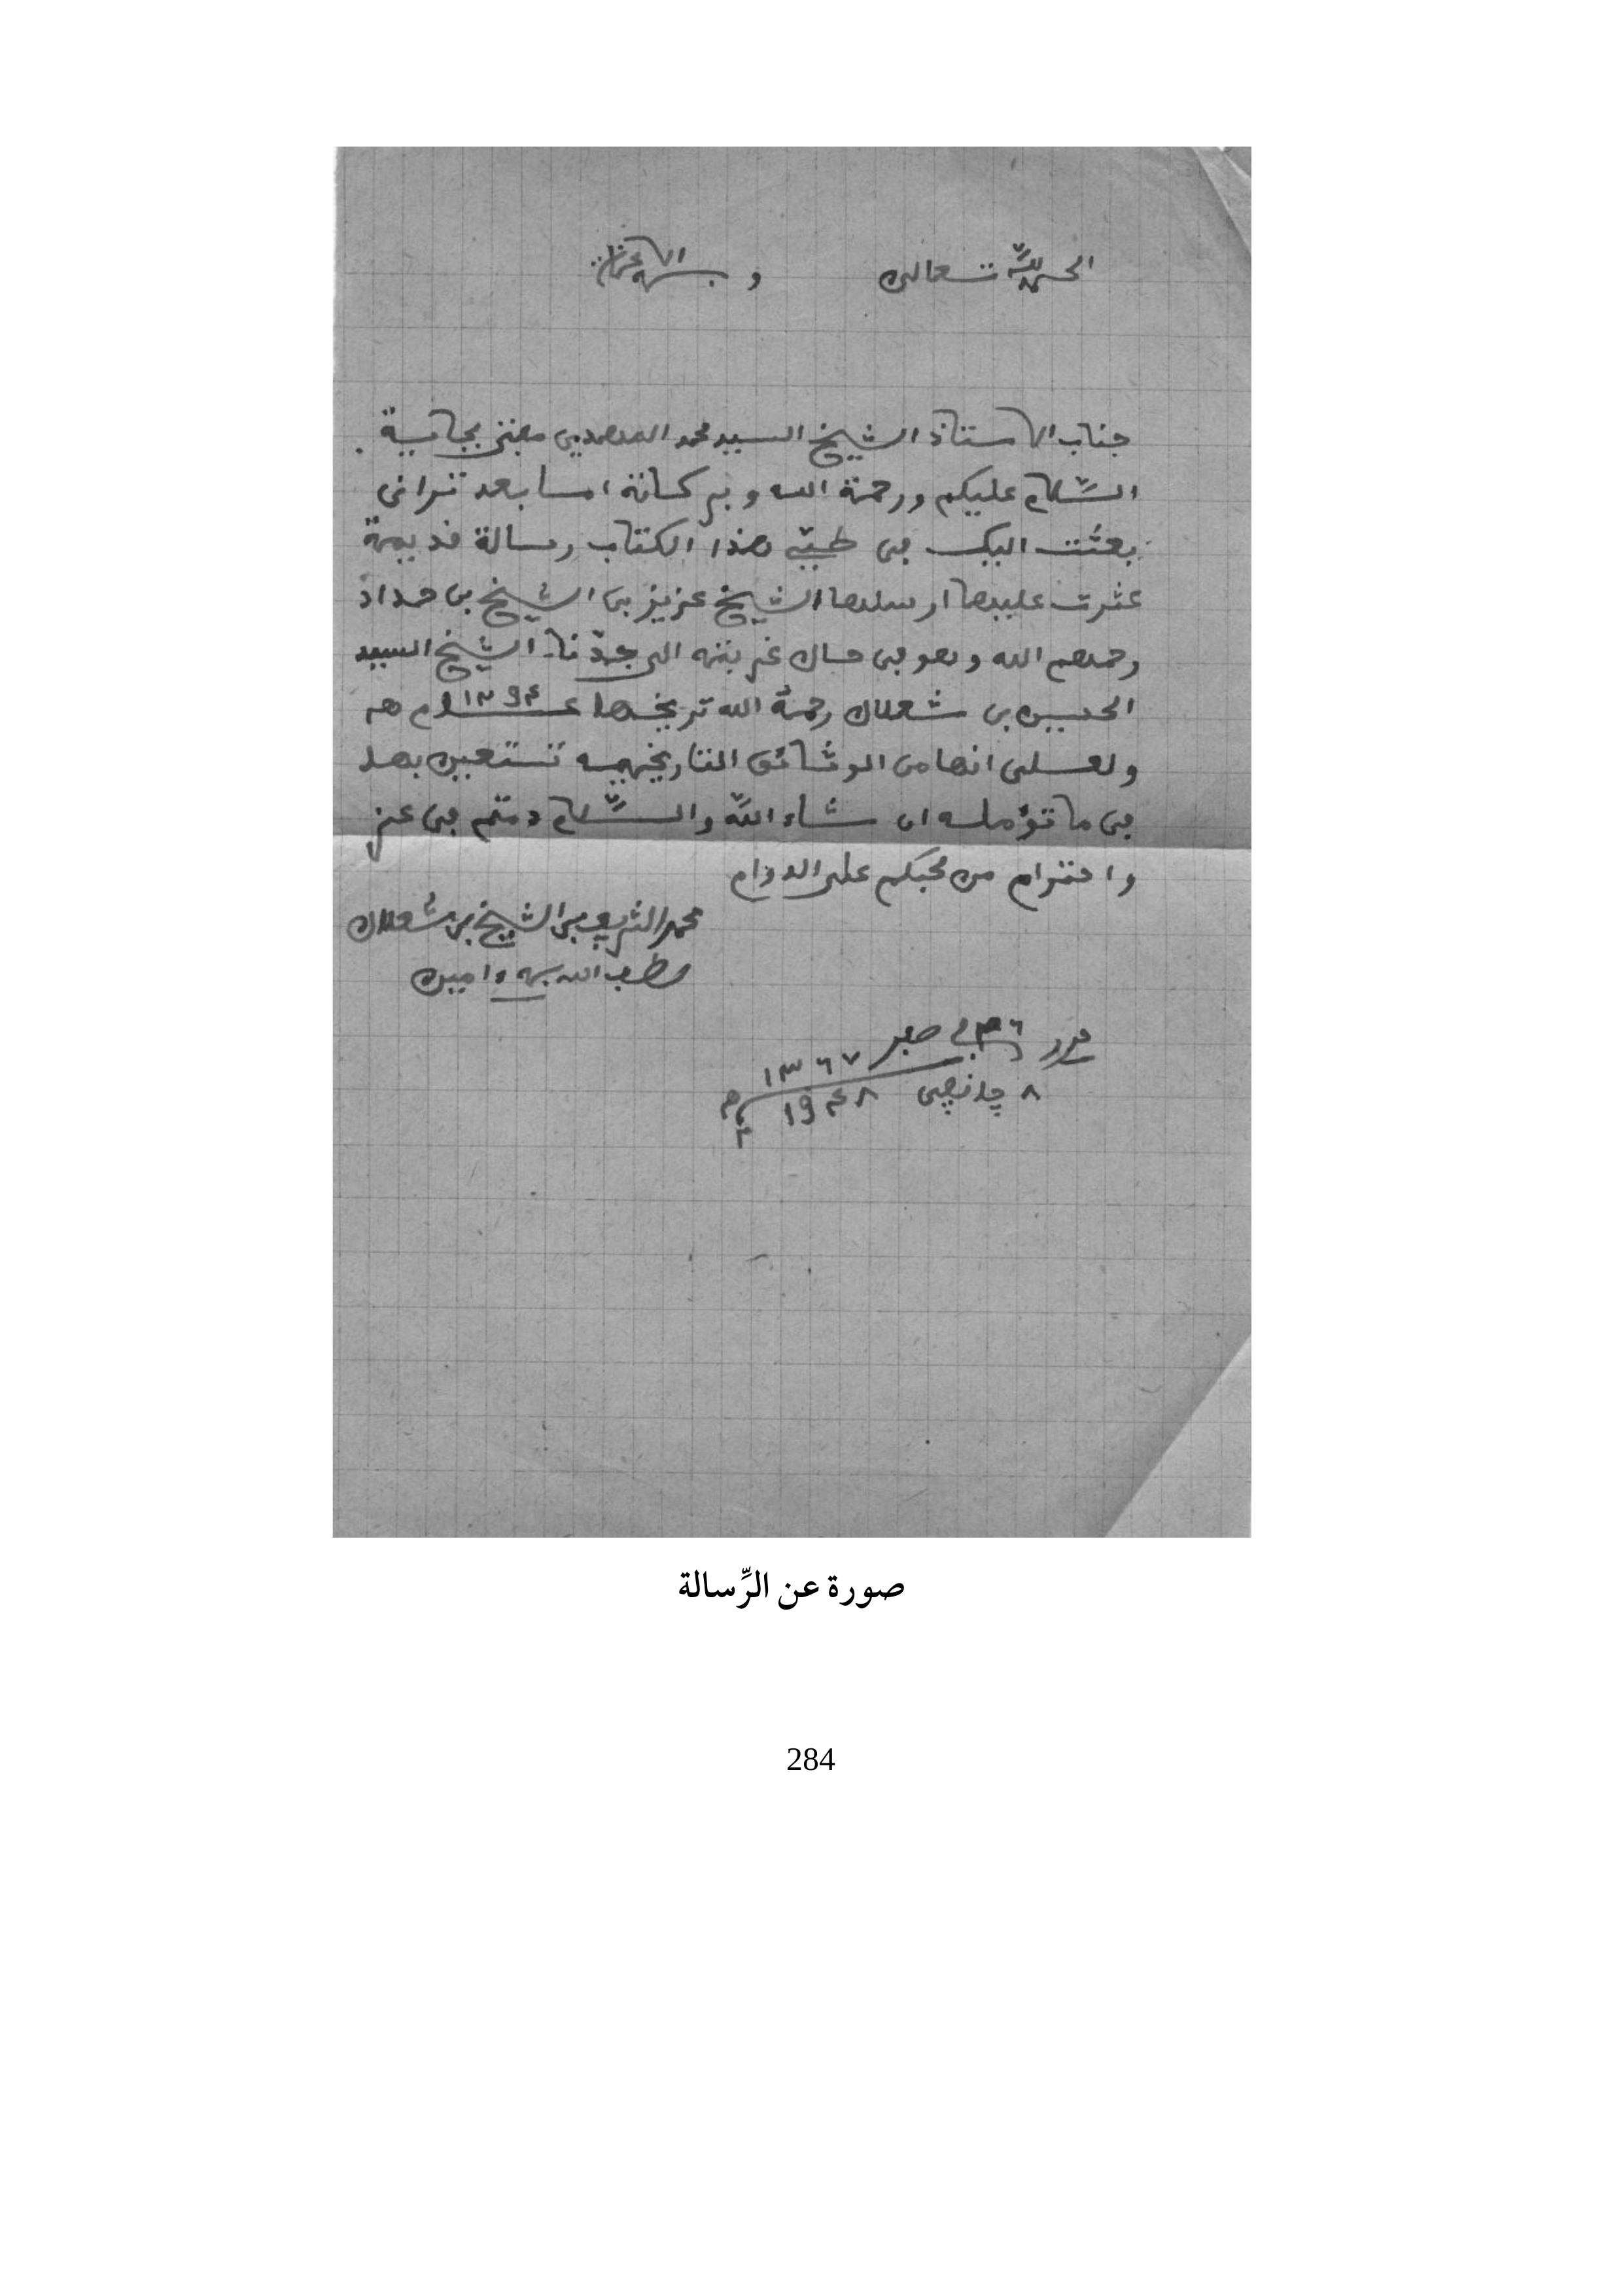 الحمد لله تعالى و به الإعانة
جناب الاستاذ الشيخ السيد محمد المهدي مفتي بجاية.
السّلام عليكم ورحمة الله وبركاته اما بعد تراني
بعثت اليك في طيّ هذا الكتاب رسالة قديمة
عثرت عليها ارسلها الشيخ عزيز بن الشيخ بن حداد
رحمهم الله وهو في حال غربته الى جدّنا الشيخ السيد
الحسين بن شعلال رحمة الله تريخها عام هـ
ولعلى انها من الوثائق التاريخية تستعين بها
في ما تؤمله ان شاء الله والسّلام دمتم في عز
واحترام من محبكم على الدوام
محمد الشريف بن الشيخ بن شعلال
لطف الله به ءامين
صفر ١٣٦٧
٨ جانفي ١٩٤٨ م
صورة عن الرِّسالة
284